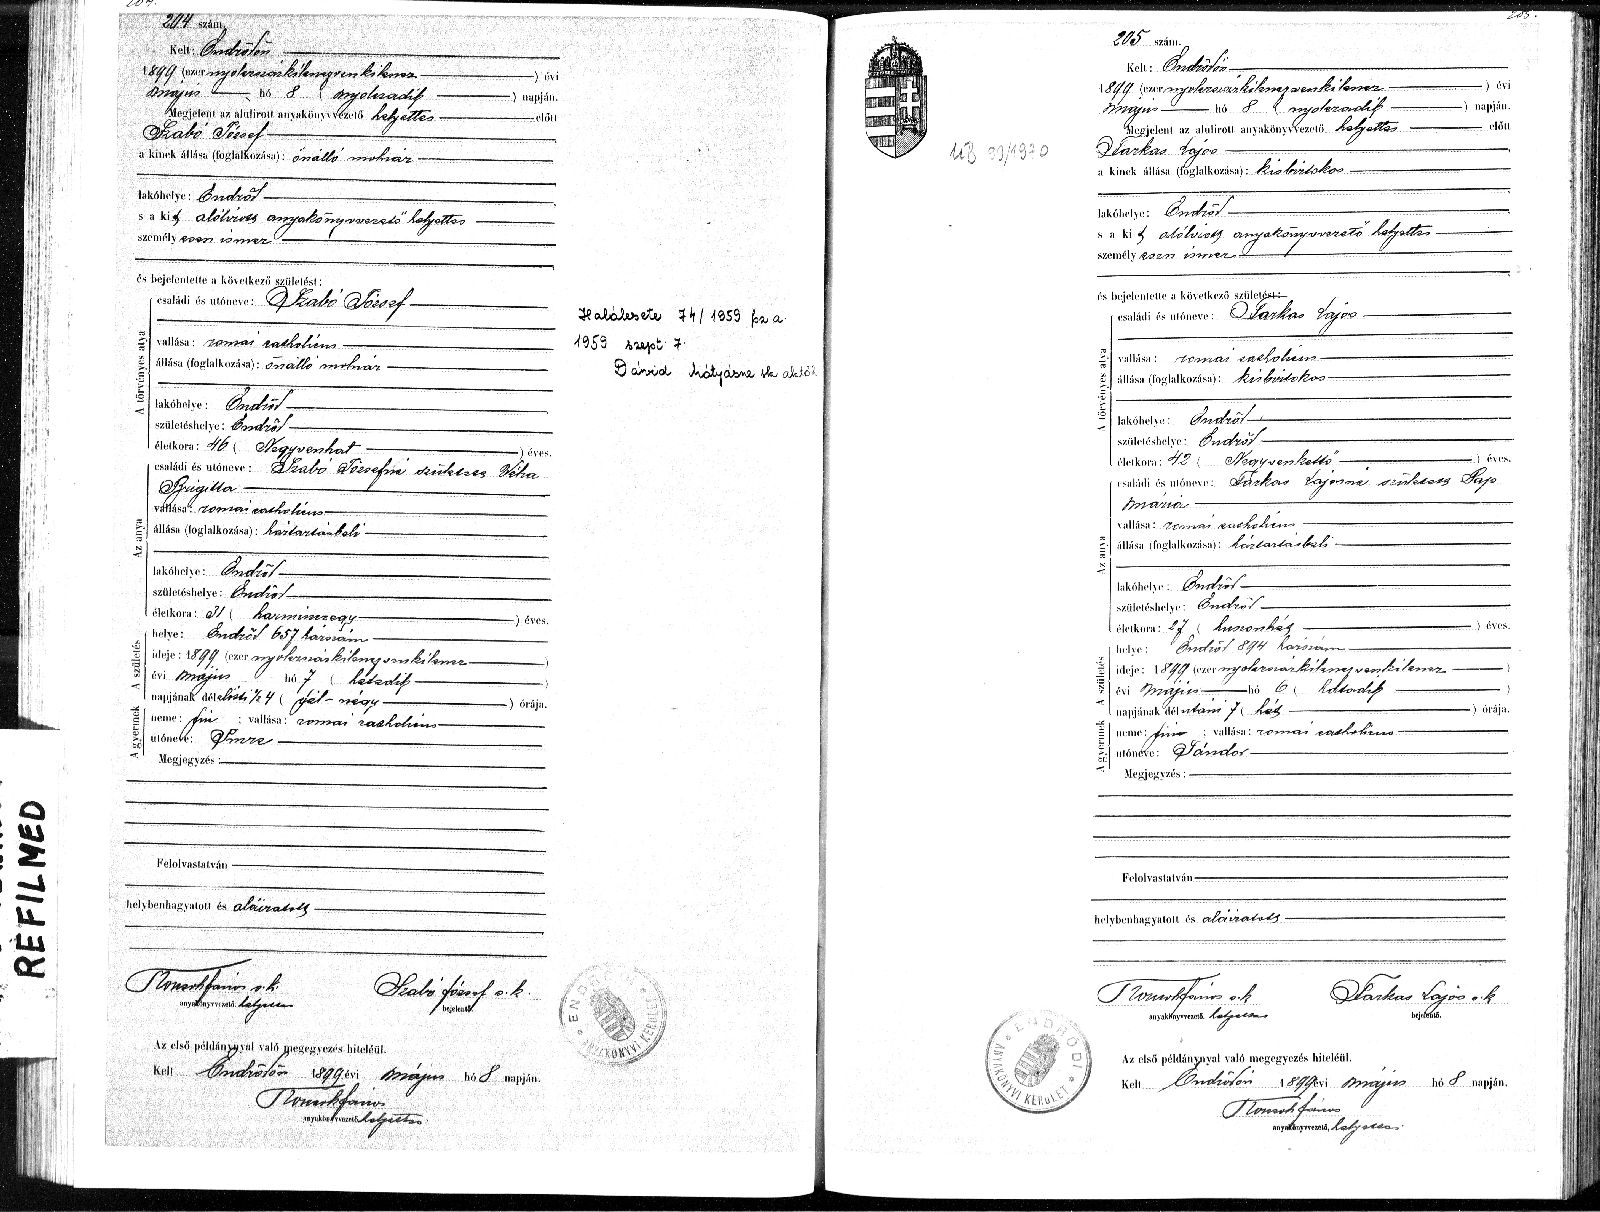 204.
204 szám.
Kelt: Endrődön
1899 (ezernyolczszázkilenczvenkilencz) évi
május hó 8 (nyolczadik) napján.
Megjelent az alulirott anyakönyvvezető helyettes előtt
Szabó József
a kinek állása (foglalkozása): önálló molnár
lakóhelye: Endrőd
s a kit alólirott anyakönyvvezető helyettes
személyesen ismer
és bejelentette a következő születést:
A törvényes atya
családi és utóneve: Szabó József
vallása: romai catholicus
állása (foglalkozása): önálló molnár
lakóhelye: Endrőd
születéshelye: Endrőd
életkora: 46 (Negyvenhat) éves.
Az anya
családi és utóneve: Szabó Józsefné született Véha
Brigitta
vallása: romai catholicus
állása (foglalkozása): háztartásbeli
lakóhelye: Endrőd
születéshelye: Endrőd
életkora: 31 (harminczegy) éves.
A születés
helye: Endrőd 657 házszám
ideje: 1899 (ezernyolczszázkilenczvenkilencz)
évi május hó 7 (hetedik)
napjának délelőtti ½ 4 (fél-négy) órája.
A gyermek
neme: fiu; vallása: romai catholicus
utóneve: Imre
Megjegyzés:
Felolvastatván
helybenhagyatott és aláiratott
János s.k.
anyakönyvvezető helyettes
Szabó József s.k.
bejelentő.
Az első példánynyal való megegyezés hiteléül.
Kelt Endrődön 1899 évi május hó 8 napján.
János
anyakönyvvezető helyettes
Halálesete 74/1959 fsz a.
1959 szept 7.
Dávid Mátyásné sk
ENDRŐDI ANYAKÖNYVI KERÜLET
REFILMED
205.
205 szám.
Kelt: Endrődön
1899 (ezernyolczszázkilenczvenkilencz) évi
május hó 8 (nyolczadik) napján.
Megjelent az alulirott anyakönyvvezető helyettes előtt
Farkas Lajos
a kinek állása (foglalkozása): kisbirtokos
lakóhelye: Endrőd
s a kit alólirott anyakönyvvezető helyettes
személyesen ismer
és bejelentette a következő születést:
A törvényes atya
családi és utóneve: Farkas Lajos
vallása: romai catholicus
állása (foglalkozása): kisbirtokos
lakóhelye: Endrőd
születéshelye: Endrőd
életkora: 42 (Negyvenkettő) éves.
Az anya
családi és utóneve: Farkas Lajosné született Pap
Mária
vallása: romai catholicus
állása (foglalkozása): háztartásbeli
lakóhelye: Endrőd
születéshelye: Endrőd
életkora: 27 (huszonhét) éves.
A születés
helye: Endrőd 894 házszám
ideje: 1899 (ezernyolczszázkilenczvenkilencz)
évi május hó 6 (hatodik)
napjának délutáni 7 (hét) órája.
A gyermek
neme: fiu; vallása: romai catholicus
utóneve: Sándor
Megjegyzés:
Felolvastatván
helybenhagyatott és aláiratott
János s.k.
anyakönyvvezető, helyettes
Farkas Lajos s.k.
bejelentő.
Az első példánynyal való megegyezés hiteléül.
Kelt Endrődön 1899 évi május hó 8 napján.
János
anyakönyvvezető, helyettes
ENDRŐDI ANYAKÖNYVI KERÜLET